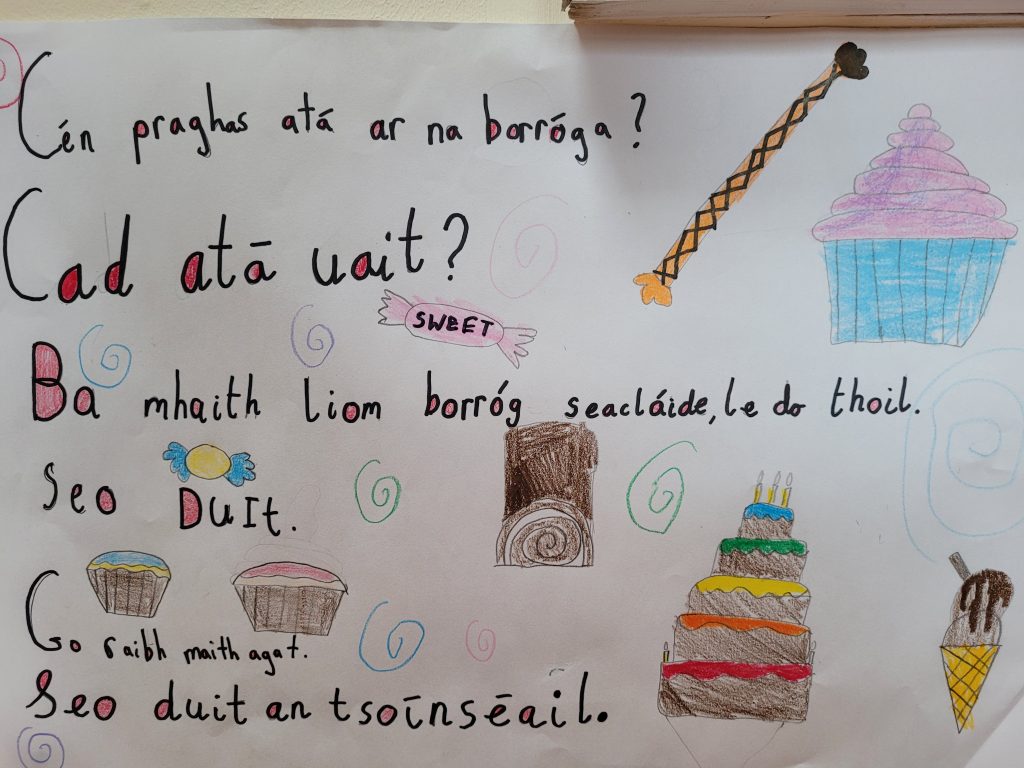 Cén praghas atá ar na borróga?
Cad atá uait?
SWEET
Ba mhaith liom borróg seacláide, le do thoil.
Seo DUIt.
Go raibh maith agat.
Seo duit an tsoínséail.